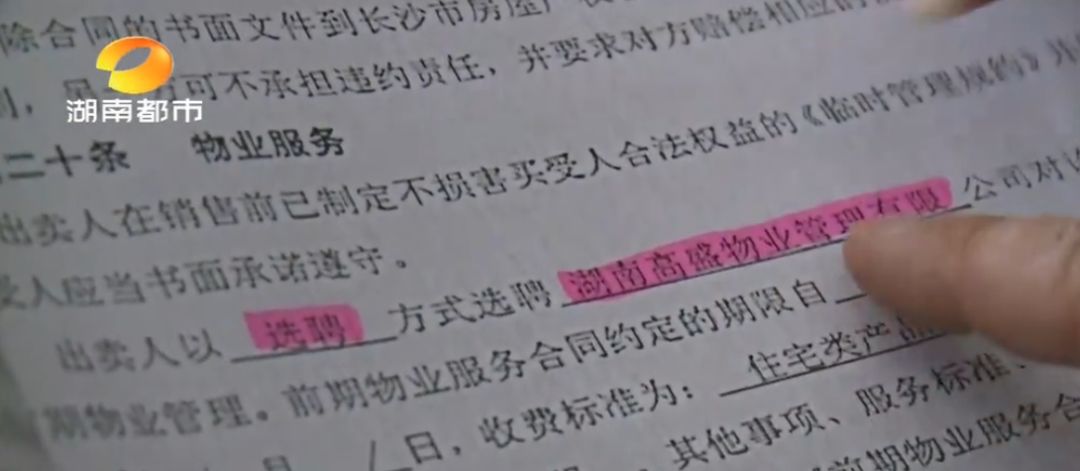 除合同的书面文件到长沙市房屋
可不承担违约责任，并要求对方赔偿相应的
湖南都市
二十条 物业服务
出卖人在销售前已制定不损害买受人合法权益的《临时管理规约》
受人应当书面承诺遵守。
出卖人以 选聘 方式选聘 湖南高盛物业管理有限 公司对
期物业管理。前期物业服务合同约定的期限自
月 / 日，收费标准为： 住宅类产品
其他事项、服务标准、
前期物业服务合